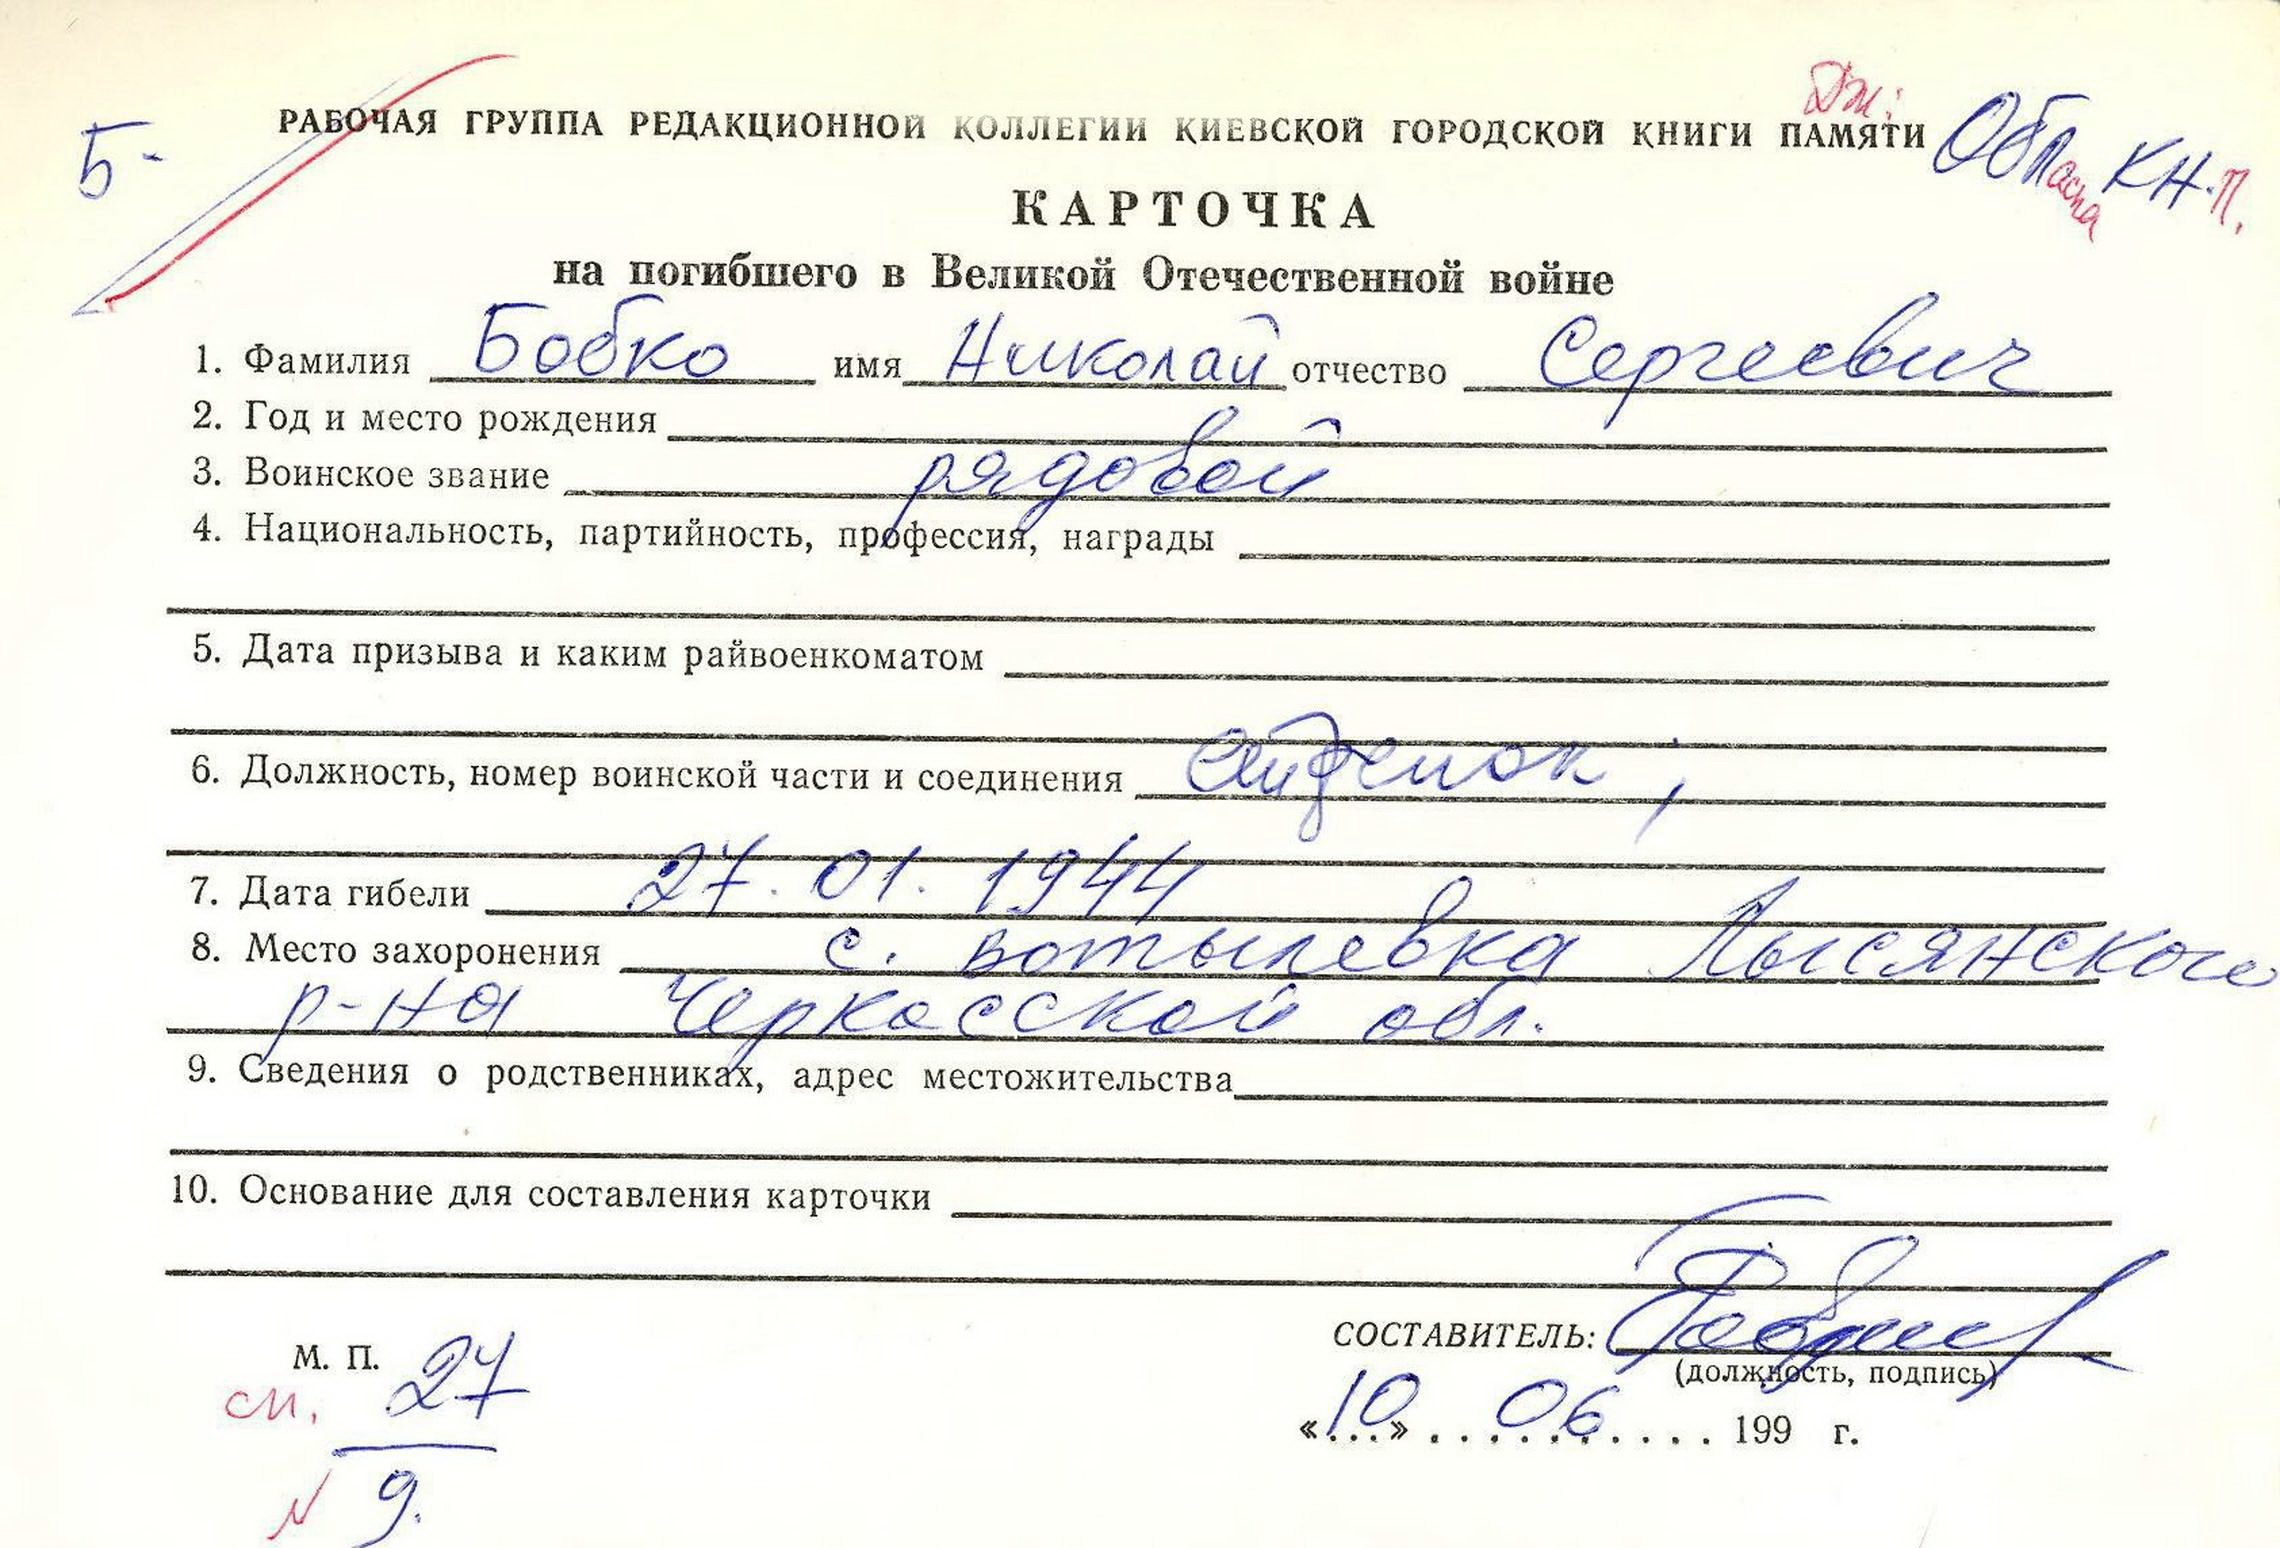 Дж:
Б- РАБОЧАЯ ГРУППА РЕДАКЦИОННОЙ КОЛЛЕГИИ КИЕВСКОЙ ГОРОДСКОЙ КНИГИ ПАМЯТИ Области КН.П.
КАРТОЧКА
на погибшего в Великой Отечественной войне
1. Фамилия Бобко имя Николай отчество Сергеевич
2. Год и место рождения
3. Воинское звание рядовой
4. Национальность, партийность, профессия, награды
5. Дата призыва и каким райвоенкоматом
6. Должность, номер воинской части и соединения
7. Дата гибели 27.01.1944
8. Место захоронения с. Вотылевка Лысянского
р-на Черкасской обл.
9. Сведения о родственниках, адрес местожительства
10. Основание для составления карточки
СОСТАВИТЕЛЬ:
М. П. 27
(должность, подпись)
см.
«10» 06 199 г.
9.